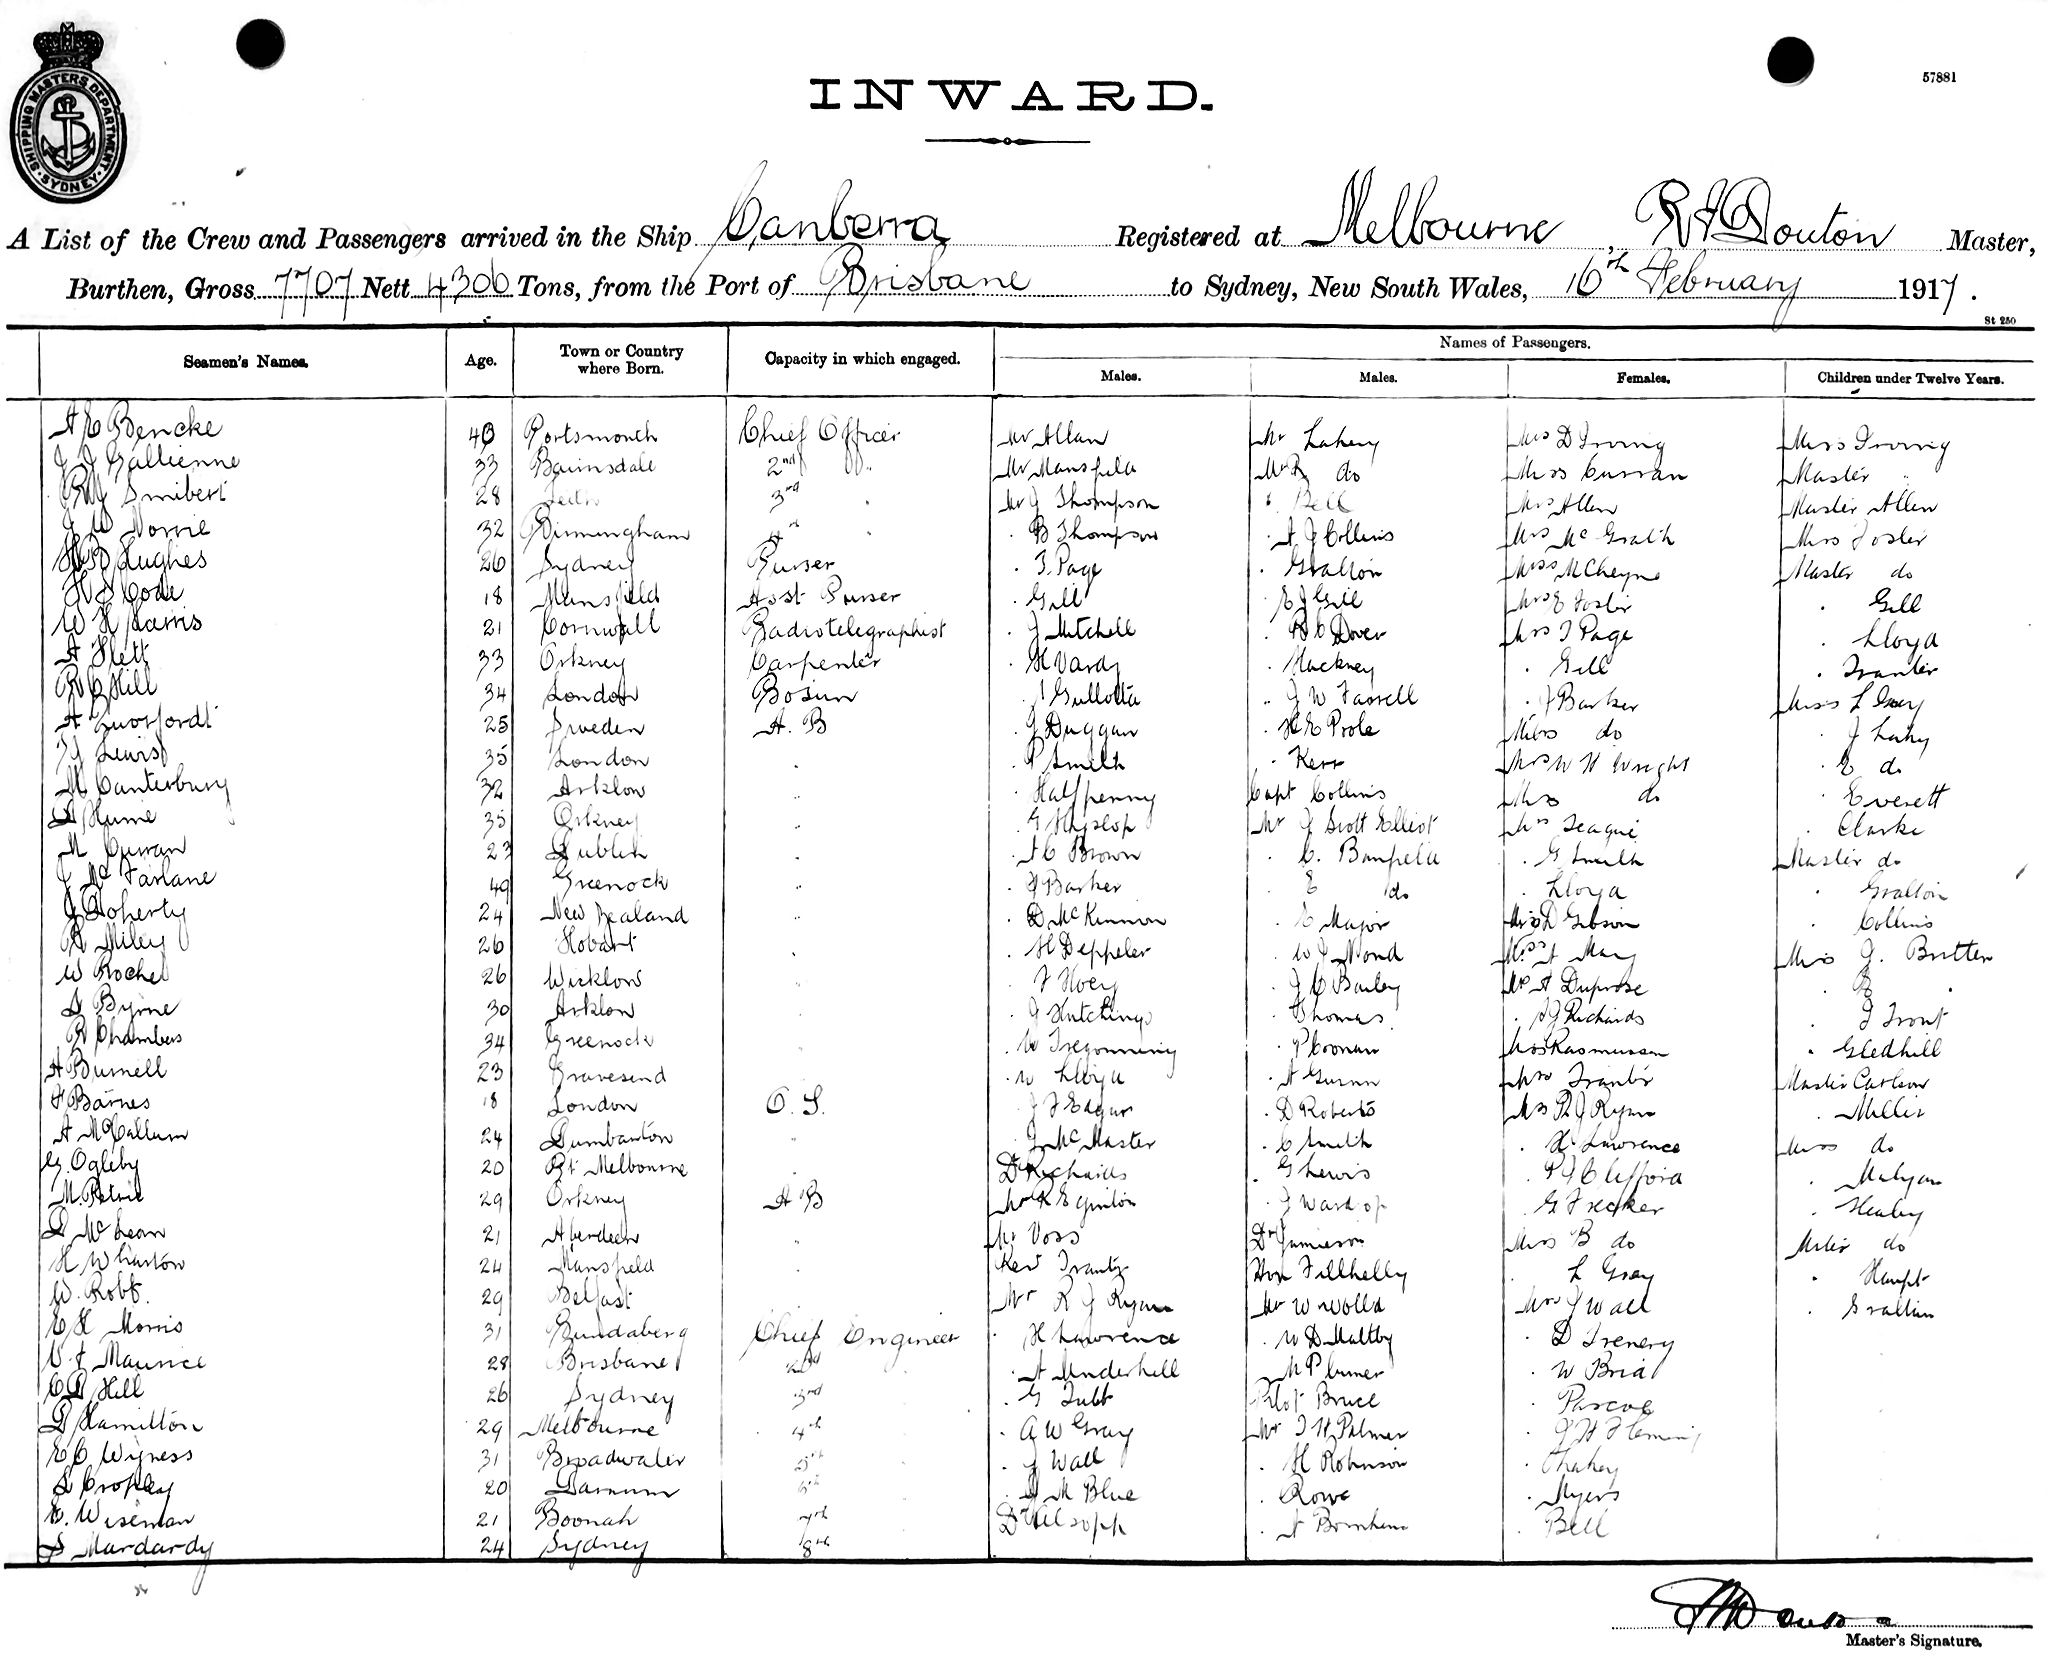 SHIPPING MASTERS DEPARTMENT. SYDNEY
57881
INWARD.
A List of the Crew and Passengers arrived in the Ship Canberra Registered at Melbourne, R F Douton Master,
Burthen, Gross 7707 Nett 4306 Tons, from the Port of Brisbane to Sydney, New South Wales, 16th February 1917.
St 250
Names of Passengers.
Seamen's Names. Age. Town or Country where Born. Capacity in which engaged. Males. Males. Females. Children under Twelve Years.
A C Bencke Portsmouth Chief Officer Mr Allan Mr Lahey Mrs D Irving Miss Irving
J J Gallienne 33 Bairnsdale 2nd Mr Mansfield do Miss Curran Master "
Smibert 28 3rd Mr J Thompson Bell Mrs Allen Master Allen
J W Norrie 32 Birmingham B Thompson A J Collins Mrs McGrath Miss Foster
Hughes 26 Sydney Purser T. Page Gratton Miss McCheyne Master do
Code 18 Mansfield Asst Purser Gill E J Gill Mrs E Foster Gill
W H Harris 21 Cornwall Radiotelegraphist J Mitchell Dover Mrs T Page Lloyd
A Flett 33 Orkney Carpenter H Vardy Hackney Gill Tranter
R C Hill 34 London Bosun Gullotta J W Farrell J Barker Miss L Grey
25 Sweden A. B J Duggan H E Poole Miss do J Lahey
Lewis 35 London P Smith Kerr Mrs W H Wright E do
M Canterbury 32 Arklow Halfpenny Capt Collins Miss do Everett
Hume 35 Orkney G Hyslop Mr J Scott Elliot Mrs Teague Clarke
M Curran 23 Dublin A C Brown C. Banfield G Smith Master do
J McFarlane 49 Greenock J Barker E do Lloyd Gratton
J Doherty 24 New Zealand D McKinnon C Major D Gibson Collins
R Miley 26 Hobart H Deppeler W J Mond A May Miss J. Britten
W Roche 26 Wicklow F Hoey J C Bailey A Duprose
D Byrne 30 Arklow J Hutchings Thomas A G Richards J Trout
R Chambers 34 Greenock W Tregonning P Coonan Rasmussen Gledhill
A Burnell 23 Gravesend W Lloyd A Gunn Mrs Tranter Master Carlson
F Barnes 18 London O. S. J F Edgar D Roberts R J Ryan Miller
A McCallum 24 Dumbarton J McMaster C Smith H Lawrence Miss do
G. Ogleby 20 Pt Melbourne Dr Richards G Lewis P J Clifford
M. Petrie 29 Orkney A B Mr J Wardrop G Frecker Healey
D McLean 21 Aberdeen Mr Voss Dr Jamieson Miss B do do
H Wharton 24 Mansfield Rev Hon Fillhelly L Gray Haupt
W. Robb. 29 Belfast Mr R J Ryan Mr W Mrs J Wall Gratton
E H Morris 31 Bundaberg Chief Engineer H Lawrence W D Maltby D Trenery
Maurice 28 Brisbane 2nd A Underhill M Plumer W
Hill 26 Sydney 3rd G Tubb Pilot Bruce Pascoe
D Hamilton 29 Melbourne 4th A W Gray Mr T H Palmer J H Fleming
E C Wyness 31 Broadwater 5th J Wall H Robinson Lahey
Cropley 20 Darnum 6th M Blue Rowe Myers
C. Wiseman 21 Boonah 7th Dr Alsopp A Bell
Mardardy 24 Sydney 8th
Master's Signature.